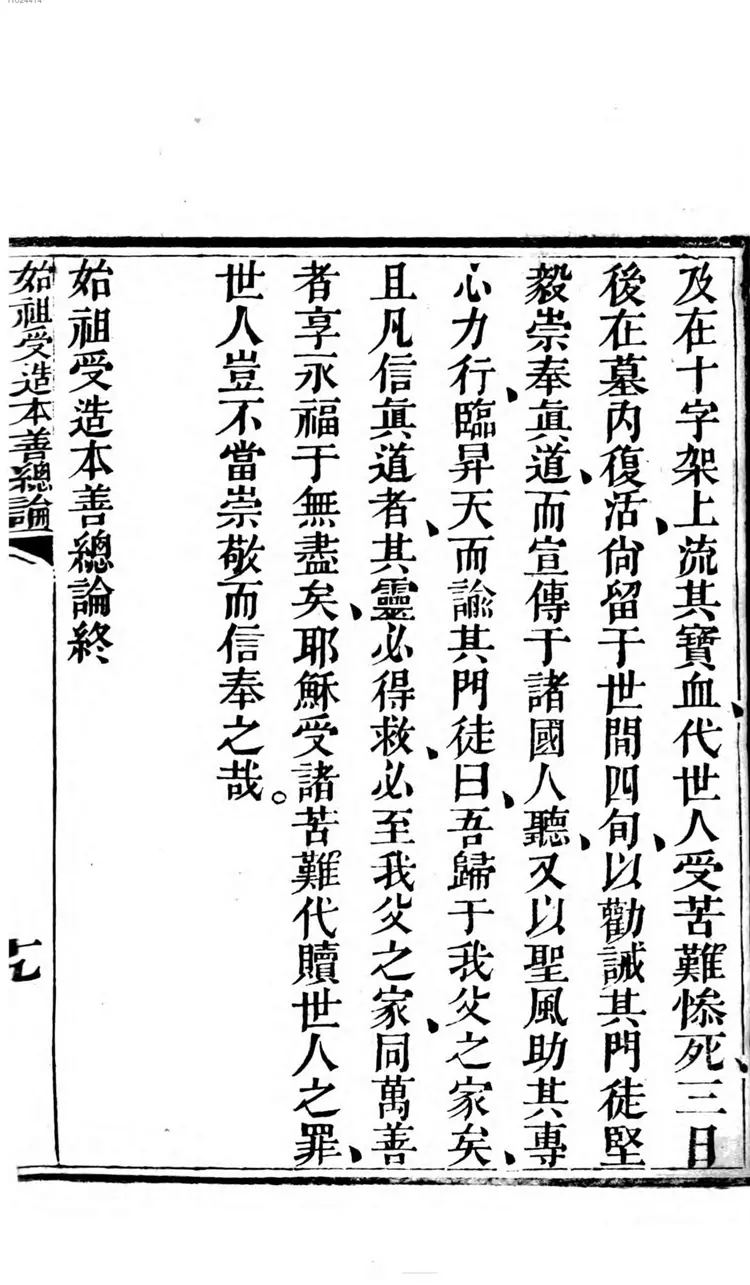 11024414
及在十字架上流其寶血、代世人受苦難慘死、三日
後在墓內復活、尙留于世間四旬、以勸誡其門徒堅
毅崇奉眞道、而宣傳于諸國人聽、又以聖風助其專
心力行、臨昇天而諭其門徒曰、吾歸于我父之家矣、
且凡信眞道者、其靈必得救、必至我父之家、同萬善
者享永福于無盡矣、耶穌受諸苦難代贖世人之罪、
世人豈不當崇敬而信奉之哉。
始祖受造本善總論終
始祖受造本善總論